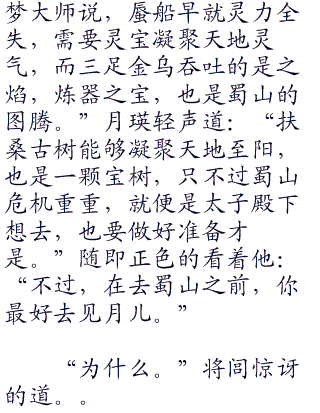 梦大师说，蜃船早就灵力全
失，需要灵宝凝聚天地灵
气，而三足金乌吞吐的是之
焰，炼器之宝，也是蜀山的
图腾。”月瑛轻声道：“扶
桑古树能够凝聚天地至阳，
也是一颗宝树，只不过蜀山
危机重重，就便是太子殿下
想去，也要做好准备才
是。”随即正色的看着他：
“不过，在去蜀山之前，你
最好去见月儿。”
“为什么。”将闾惊讶
的道。。